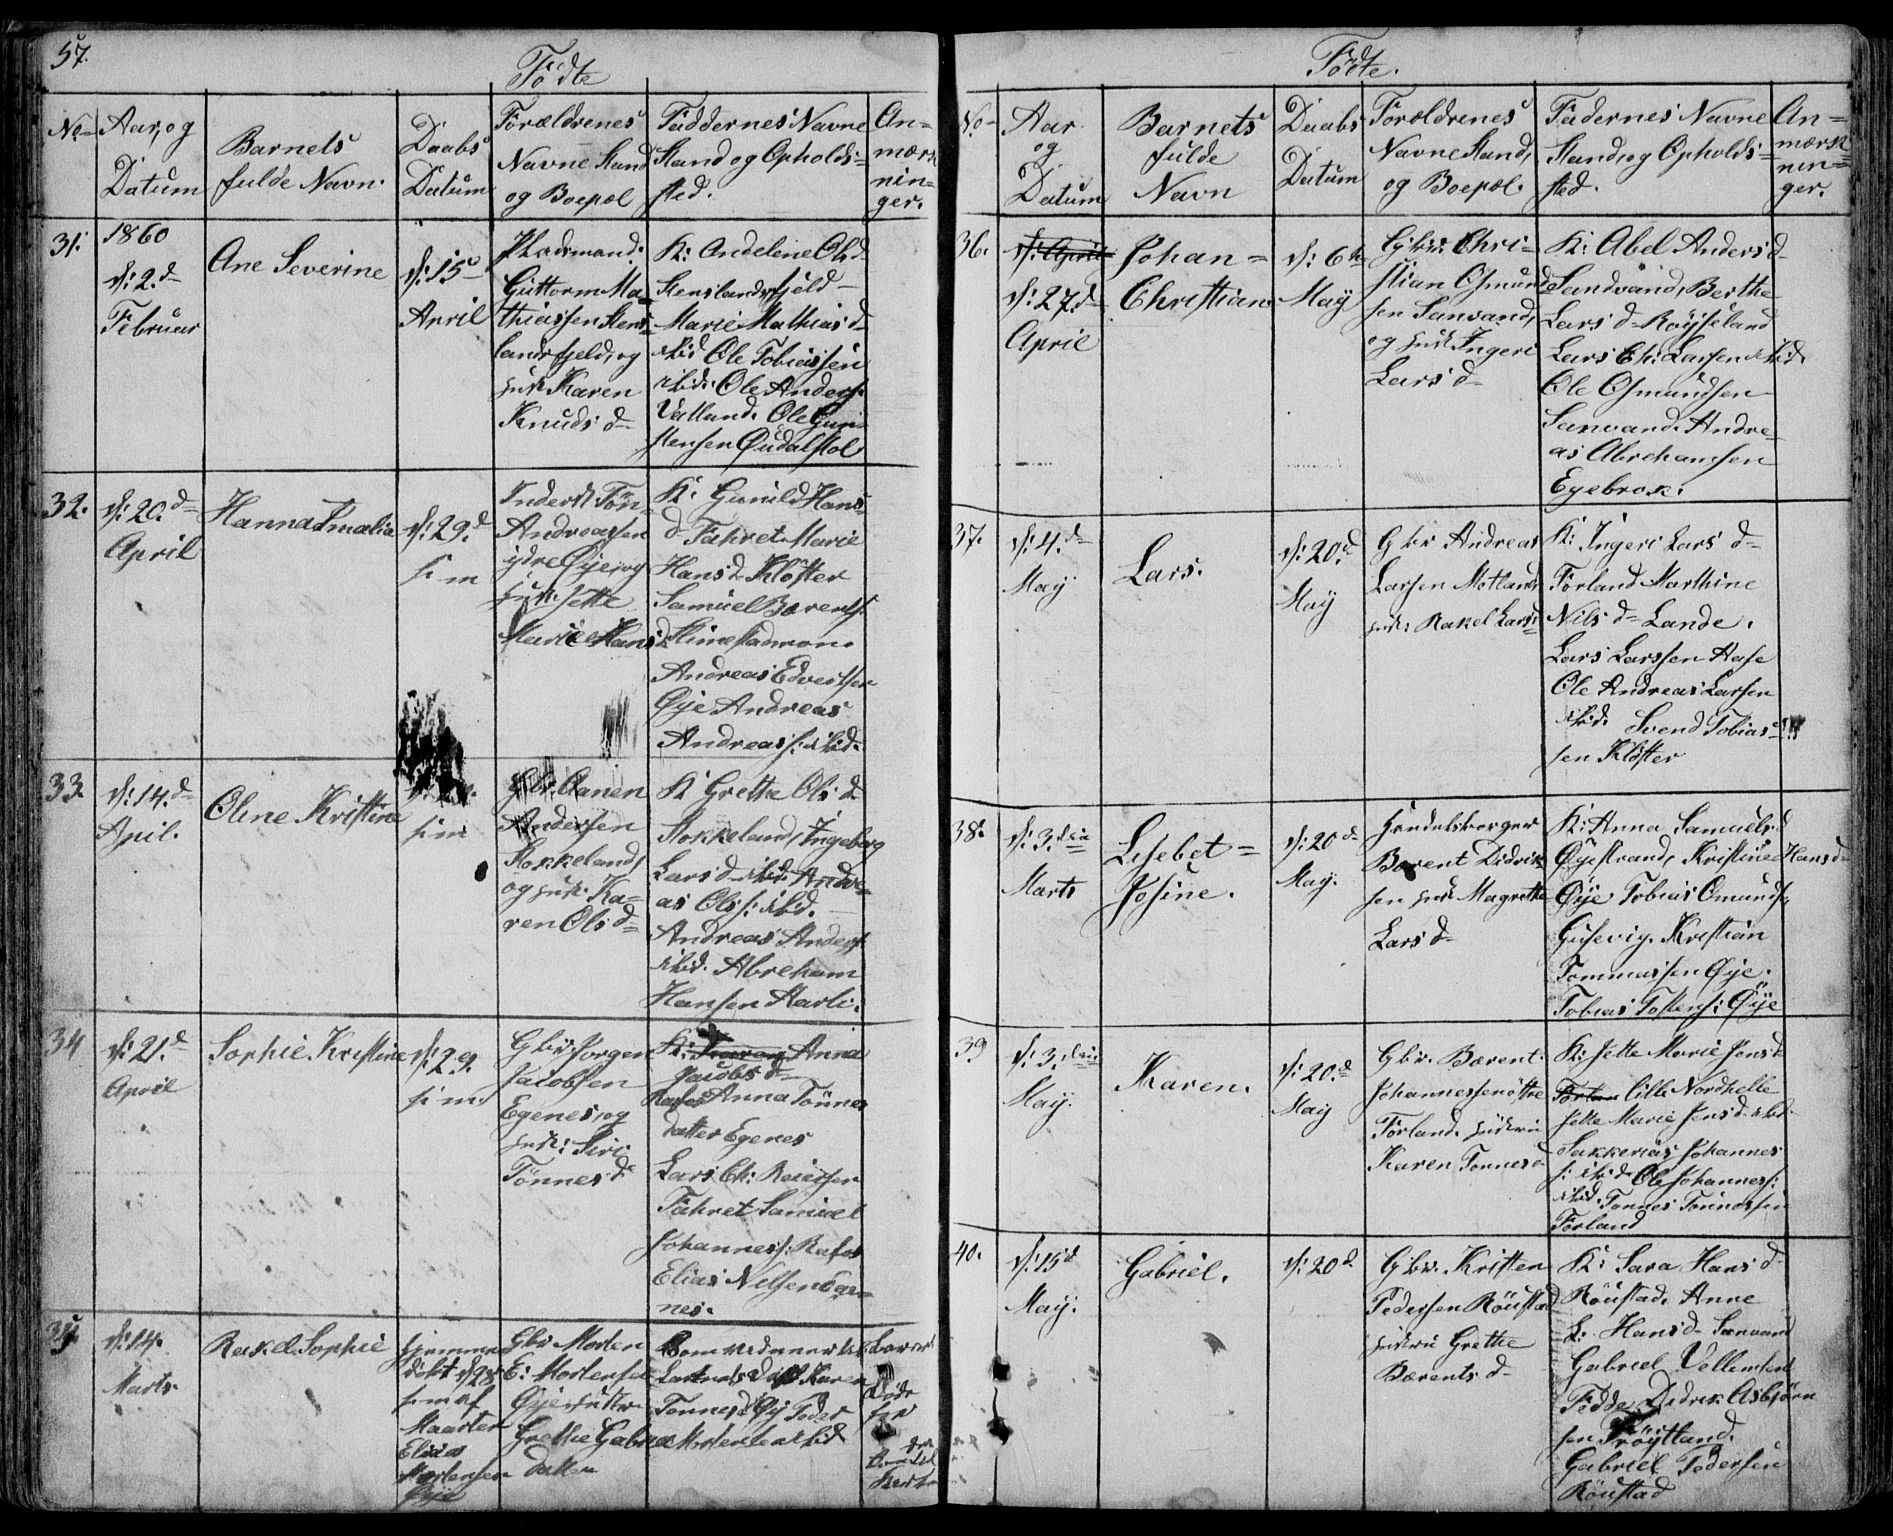 57.
Fødte
No
Aar, og
Datum
Barnets
fulde Navn.
Daabs
Datum
Forældrenes
Navne Stand
og Boepæl
Faddernes Navne
Stand og Opholds=
sted.
An=
mærk
nin=
ger.
31.
1860
d: 2.d
Februar
Ane Severine
d: 15
April
Guttorm Ma=
thiassen Stens=
landsfjeld, og
Karen
Knuds d
K: Andeline Ols d
Stenslandsfjeld
Marie Mathias d
ibid Ole Tobiassen
ibid. Ole Anders.
Vatland. Ole Gun
stensen Qudalstol
32.
d: 20.d
April
Hanna Amalia
d: 29.d
s: m
Inderst Tön.
Andreassen
ydre Øye, og
Jette
Marie Hans d
K: Gunild Hans
d Fahret Marie
Hans d Kloster
Samuel Bærents.
Andreas Edvertsen
Øye Andreas
Andreas s: ibid.
33.
d: 14.d
April.
Oline Kristine
s: m
Gbr. Aanen
Andersen
Stokkeland,
og Ka=
ren Ols d
K Grethe Ols d
Stokkeland, Ingeborg
Lars d ibid. Andre=
as Ols s: ibid.
Andreas Anders.
ibid. Abreham
Hansen Harli.
34
d: 21.d
April
Sophie Kristine
d: 29.
s: m
Gbr. Jorgen
Jacobsen
Egenes, og
Siri
Tönnes d
K: Anna
Jacobs d
Rafos Anna Tönnes
datter Egenes
Lars Ch: Reiersen
Fahret Samuel
Johannes s: Rafos
Elias Nilsen Ege=
nes.
35
d: 14.
Marts
Rakel Sophie
hjemme
döbt d: 28
s: m af
Maarten
Elias
Mortensen
Øye
Gbr Morten
E: Mortensen
Øye
Grethe Gabriels
datter
Karen
Tonnes d Øy Peder
Mortensen ibid
Fødte.
No
Aar
og
Datum
Barnets
fulde
Navn
Daabs
Datum
Forældrenes
Navne Stand,
og Boepæl.
Fadernes Navne
Stand, og Opholds=
sted.
An=
mærk
nin=
ger.
36.
d: April
d: 27.d
April
Johan=
Christian
d: 6te
May
Gbr. Chri=
stian Osmund
sen Sanvand,
og Ingeri
Lars d
K: Abel Anders d
Sandvand, Berthe
Lars d Röyseland
Lars Ch: Larsen ibid.
Ole Osmundsen
Sanvand. Andre=
as Abrehamsen
Egebrok.
37.
d: 4.d
May
Lars.
d: 20.d
May
Gbr Andreas
Larsen Motland
Rakel Lars d
K: Ingeri Lars d
Förland Marthine
Nils d Lande.
Lars Larssen Aase
Ole Andreas Larsen
ibid. Svend Tobias=
sen Kloster
38.
d: 3.die
Marts
Lisebet=
Josine.
d: 20 d
May.
Handelsborger
Bærent Didrik
sen Magrethe
Lars d
K: Anna Samuels d
Øyestrand, Kristine Hans d
Øye Tobias Omunds.
Gusevig. Kristian
Tommassen Øye.
Tobias Tostens: Øye
39
d: 3.die
May.
Karen.
d: 20.d
May
Gbr. Bærent
Johannessen östre
Förland.
Karen Tonnes d
K: Jette Marie Jens d
lille Nordhelle
Jette Marie Jens d. ibid.
Sakkerias Johannes
s: ibid. Ole Johanness:
ibid. Tonnes Tonnessen
Förland
40.
d: 15d
May.
Gabriel.
d: 20 d
Gbr. Kristen
Pedersen Röustad
Grethe
Bærents d
K: Sara Hans d
Röustad. Anne
L. Hans d Sanvand
Gabriel Vellemsen
Fedde Didrik Asbjörn
sen Tröytland.
Gabriel Pedersen
Röustad